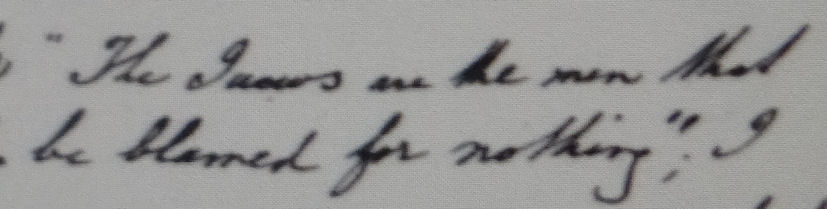 "The Juews are the men that
be blamed for nothing"; I